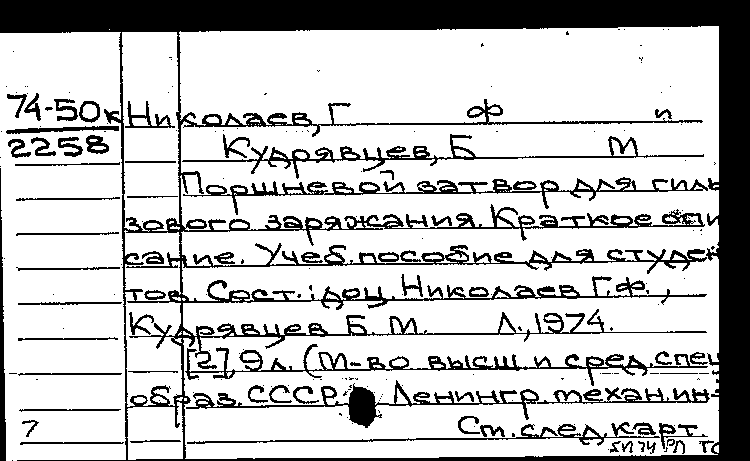 74-50к Николаев, Г Ф и
2258 Кудрявцев, Б М
Поршневой затвор для гиль
зового заряжания. Краткое опи
сание. Учеб. пособие для студен
тов. Сост.: доц. Николаев Г.Ф.,
Кудрявцев Б.М. Л., 1974.
[2], 9 л. (М-во высш. и сред. спец
образ. СССР. Ленингр. механ. ин-
7 Ст. след. карт.